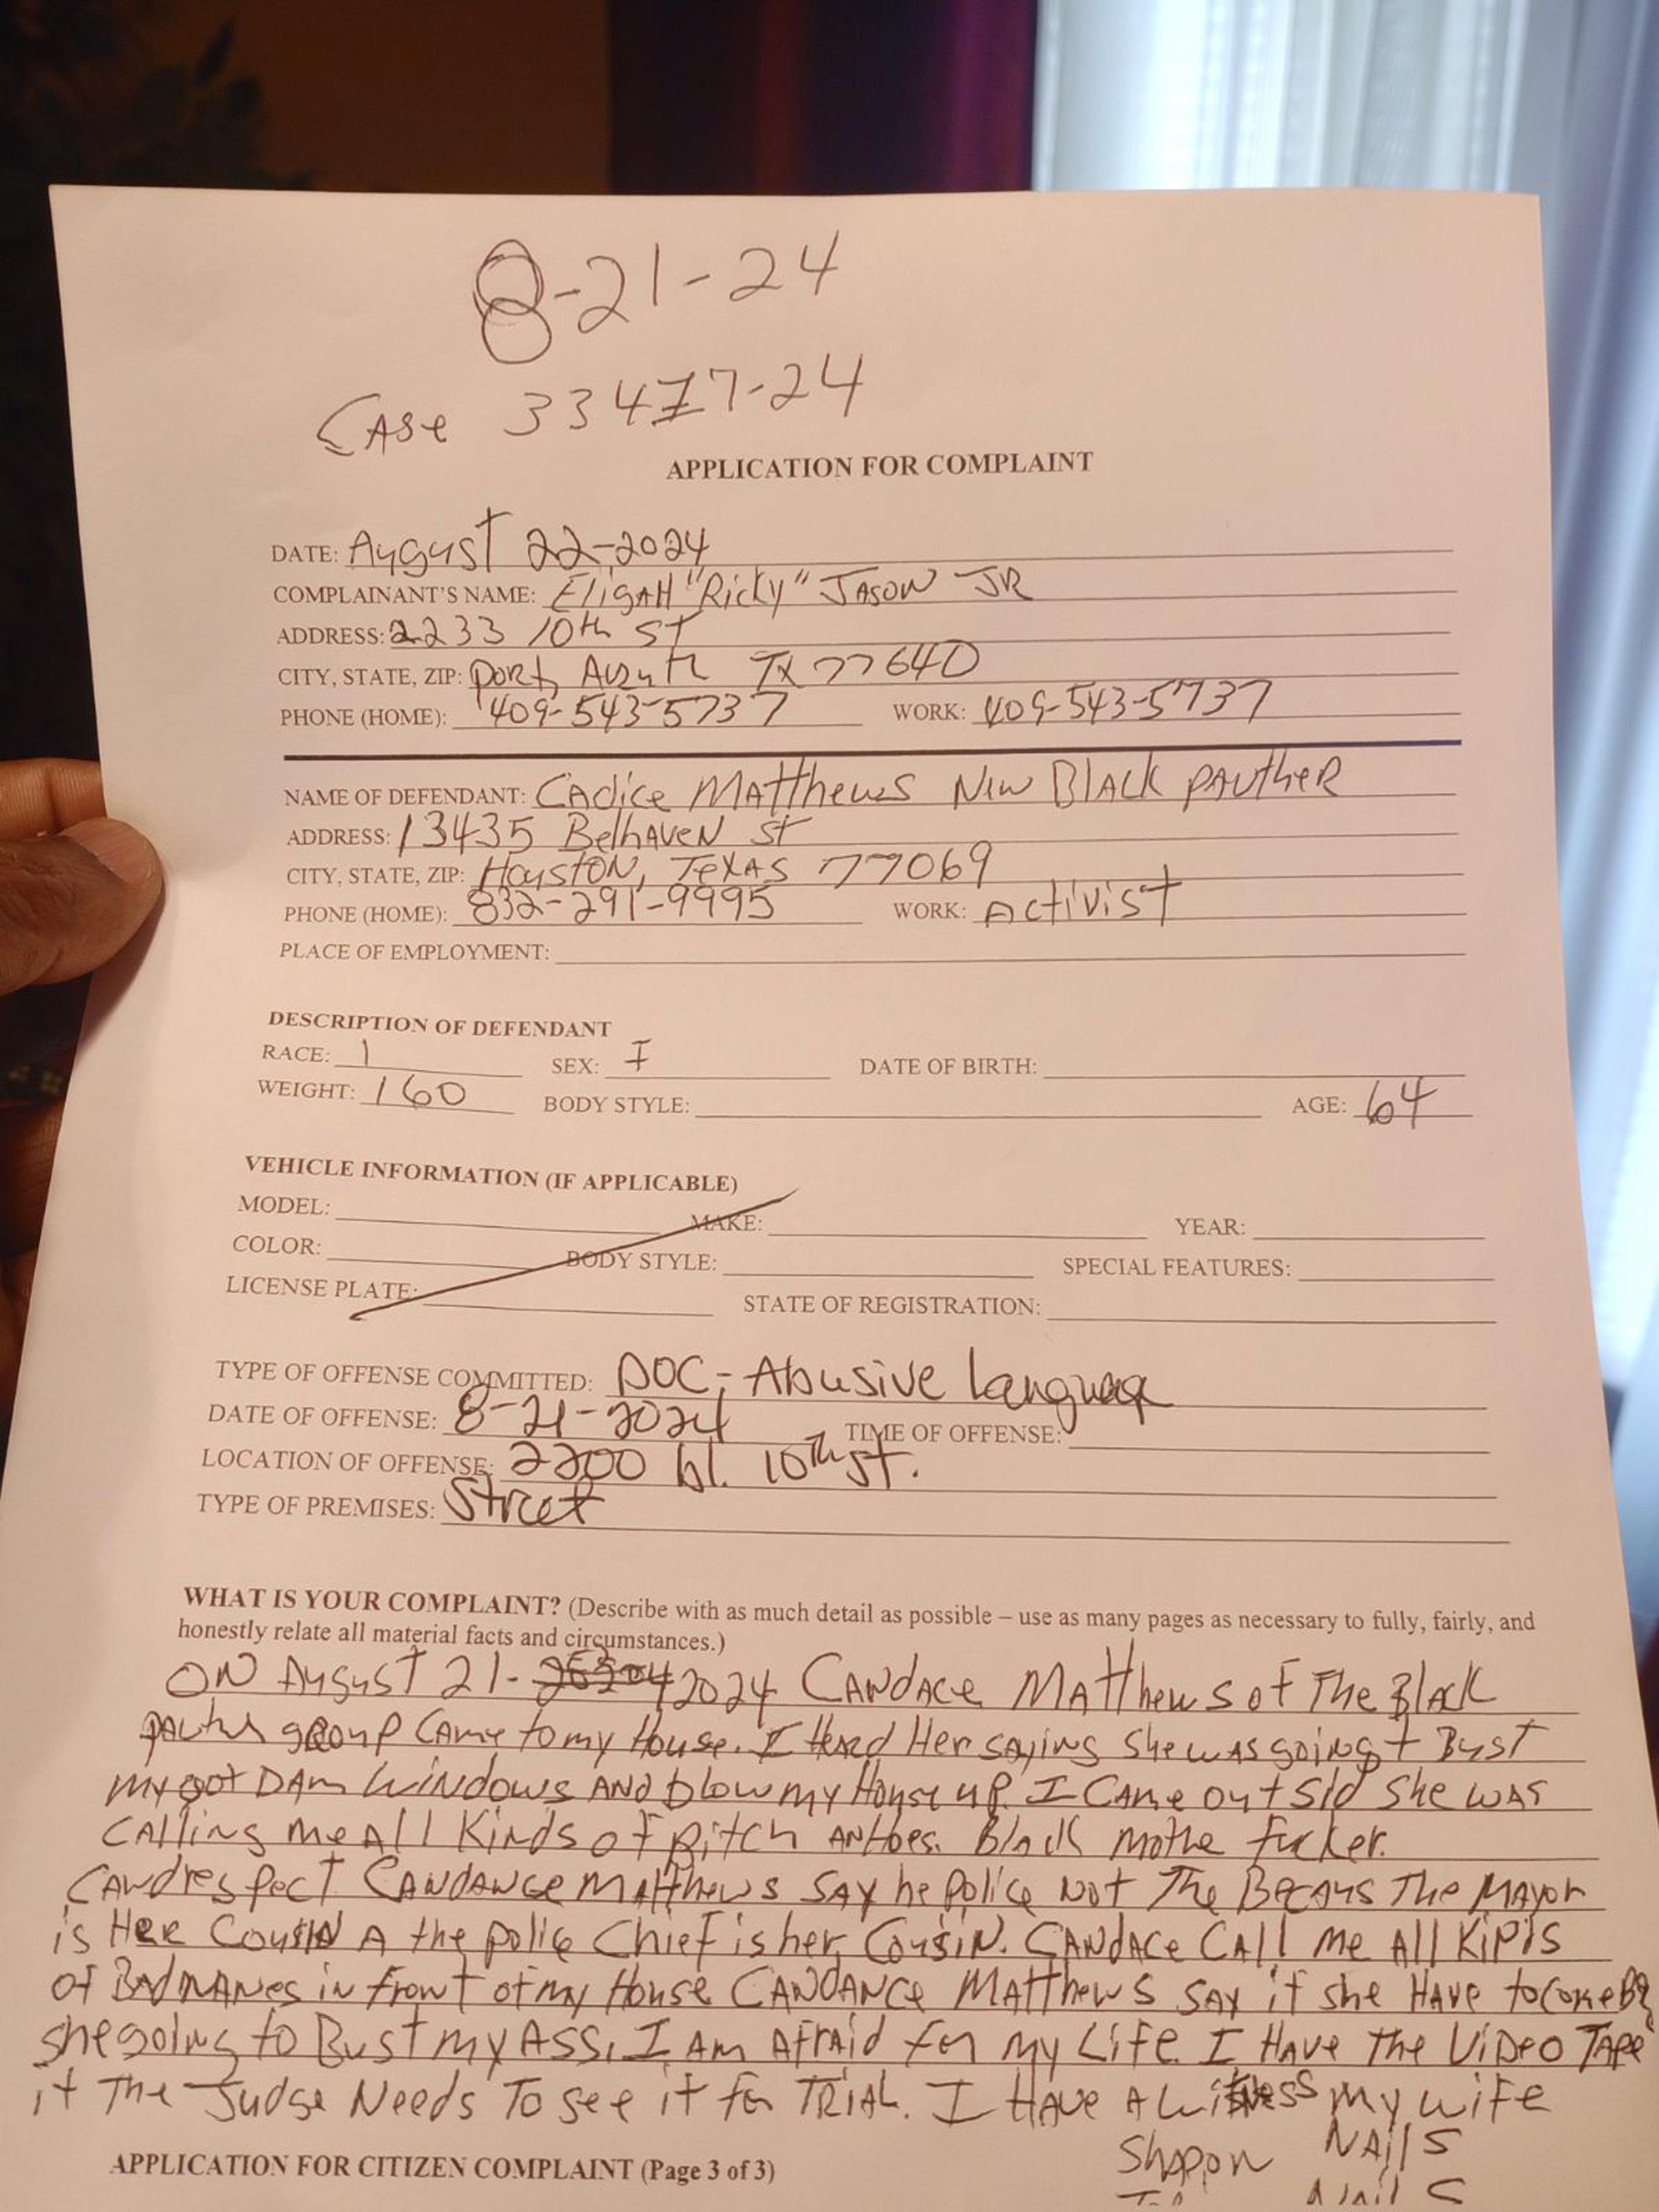 8-21-24
Case 33477-24
APPLICATION FOR COMPLAINT
DATE: August 22-2024
COMPLAINANT'S NAME: EligAH "Ricky" JASON JR
ADDRESS: 2233 10th ST
CITY, STATE, ZIP: Port, TX 77640
PHONE (HOME): 409-543-5737 WORK: 409-543-5737
NAME OF DEFENDANT: CAdice MAtthews New BlAck PAutheR
ADDRESS: 13435 BelhAveN st
CITY, STATE, ZIP: HoustON, TexAs 77069
PHONE (HOME): 832-291-9995 WORK: Activist
PLACE OF EMPLOYMENT:
DESCRIPTION OF DEFENDANT
RACE: 1 SEX: F DATE OF BIRTH:
WEIGHT: 160 BODY STYLE: AGE: 64
VEHICLE INFORMATION (IF APPLICABLE)
MODEL: MAKE: YEAR:
COLOR: BODY STYLE: SPECIAL FEATURES:
LICENSE PLATE: STATE OF REGISTRATION:
TYPE OF OFFENSE COMMITTED: DOC-Abusive Language
DATE OF OFFENSE: 8-21-2024 TIME OF OFFENSE:
LOCATION OF OFFENSE: 2200 bl. 10th st.
TYPE OF PREMISES: Street
WHAT IS YOUR COMPLAINT? (Describe with as much detail as possible – use as many pages as necessary to fully, fairly, and
honestly relate all material facts and circumstances.)
ON August 21- 2024 CANdAce MAtthews of The BlAck
group CAme to my House. I HeaRd Her sAying she wAs going t Bust
my got DAm WiNdows ANd blow my House up. I CAme out sid she wAs
CAlliNg me All KiNds of Bitch ANHoes. BlAck mothe fucker.
CANdrespect CANDANCe MAtthews SAy he Police Not The BecAus The MAyor
is HeR CousiN A the police Chief is her CousiN. CANdAce CAll me All KiNds
of BAd NAMes in front of my House CANDANCe MAtthews SAy if she HAve to come By
she goiNg to Bust my ASS, I Am AfrAid for my Life. I HAve the ViDeo TApe
if The Judge Needs To see it for TRiAL. I HAve A Witness my wife
ShARON NAils
APPLICATION FOR CITIZEN COMPLAINT (Page 3 of 3)